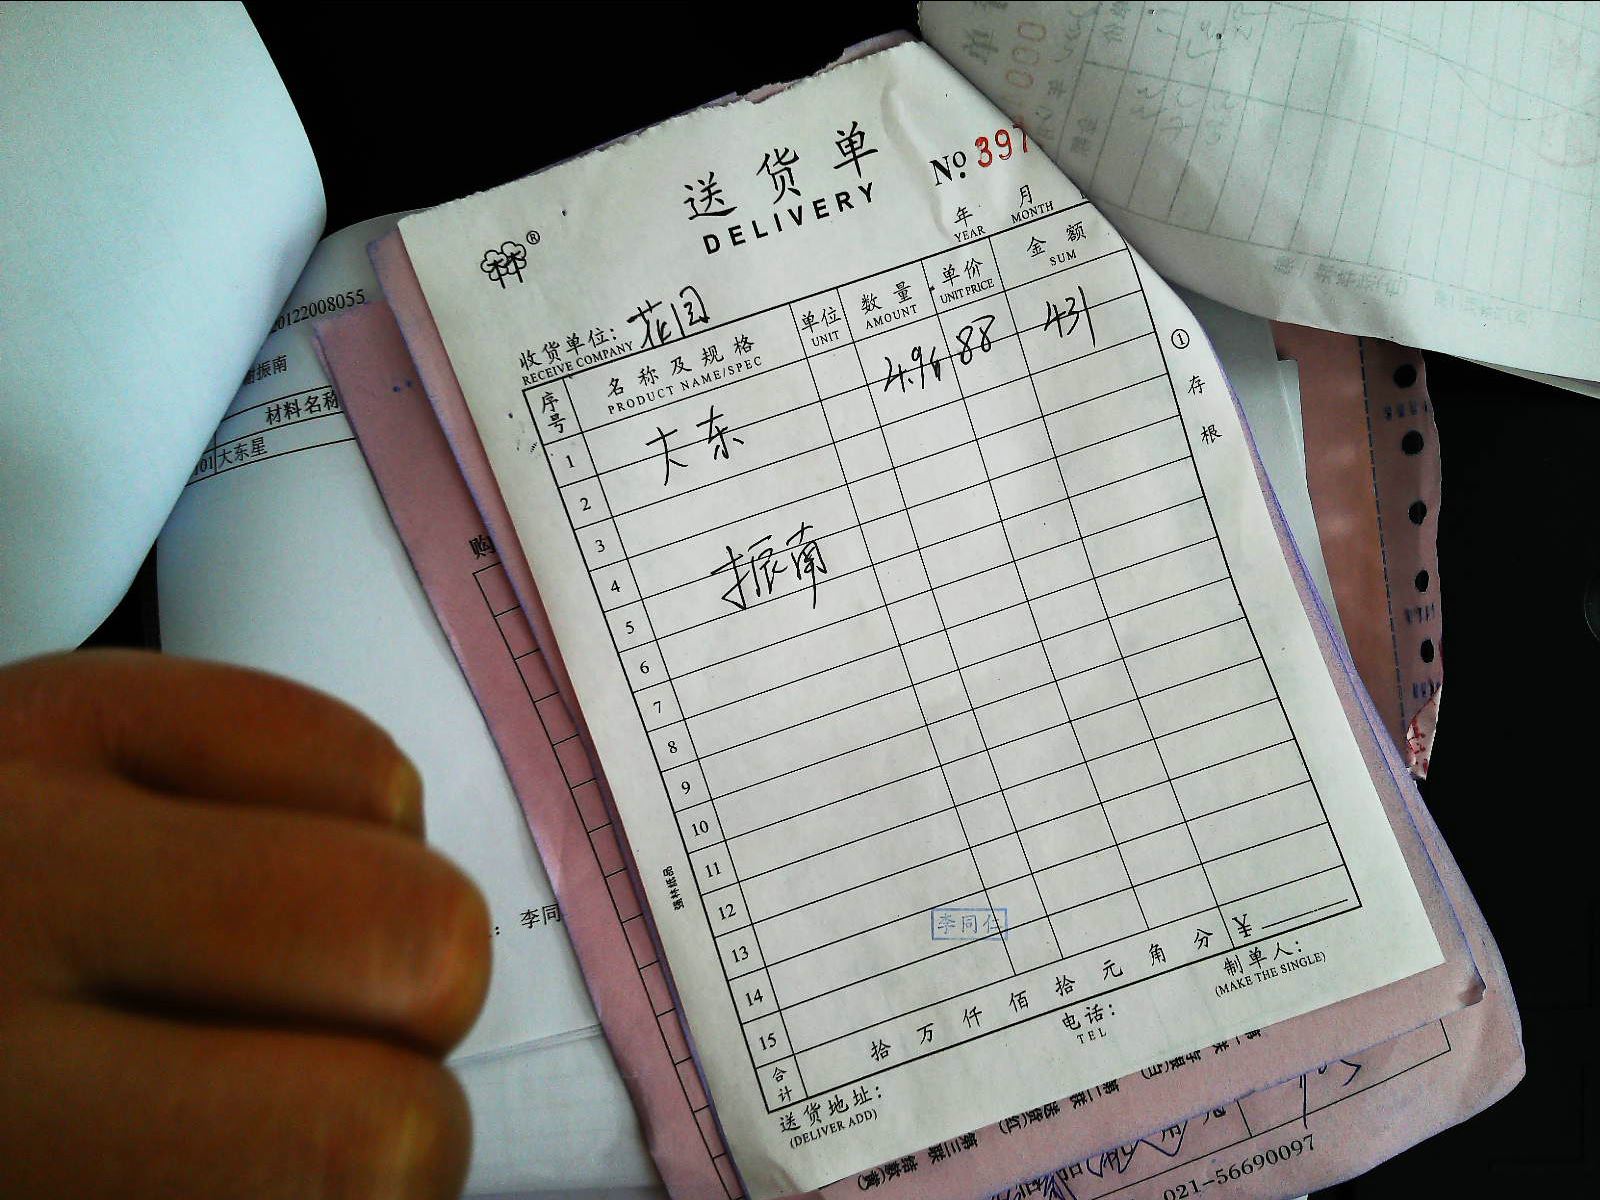 送货单
DELIVERY
No. 397
年 月
YEAR MONTH
®
收货单位: 花园
RECEIVE COMPANY
序号 名称及规格 单位 数量 单价 金额
PRODUCT NAME/SPEC UNIT AMOUNT UNIT PRICE SUM
1 大东 4.96 88 431
2
3
4 振南
5
6
7
8
9
10
11
12
13 李同仁
14
15
合计 拾 万 仟 佰 拾 元 角 分 ¥
送货地址: 电话: 制单人:
(DELIVER ADD) TEL (MAKE THE SINGLE)
① 存根
强林纸品
20122008055
振南
材料名称
01 大东星
购
: 李同
021-56690097